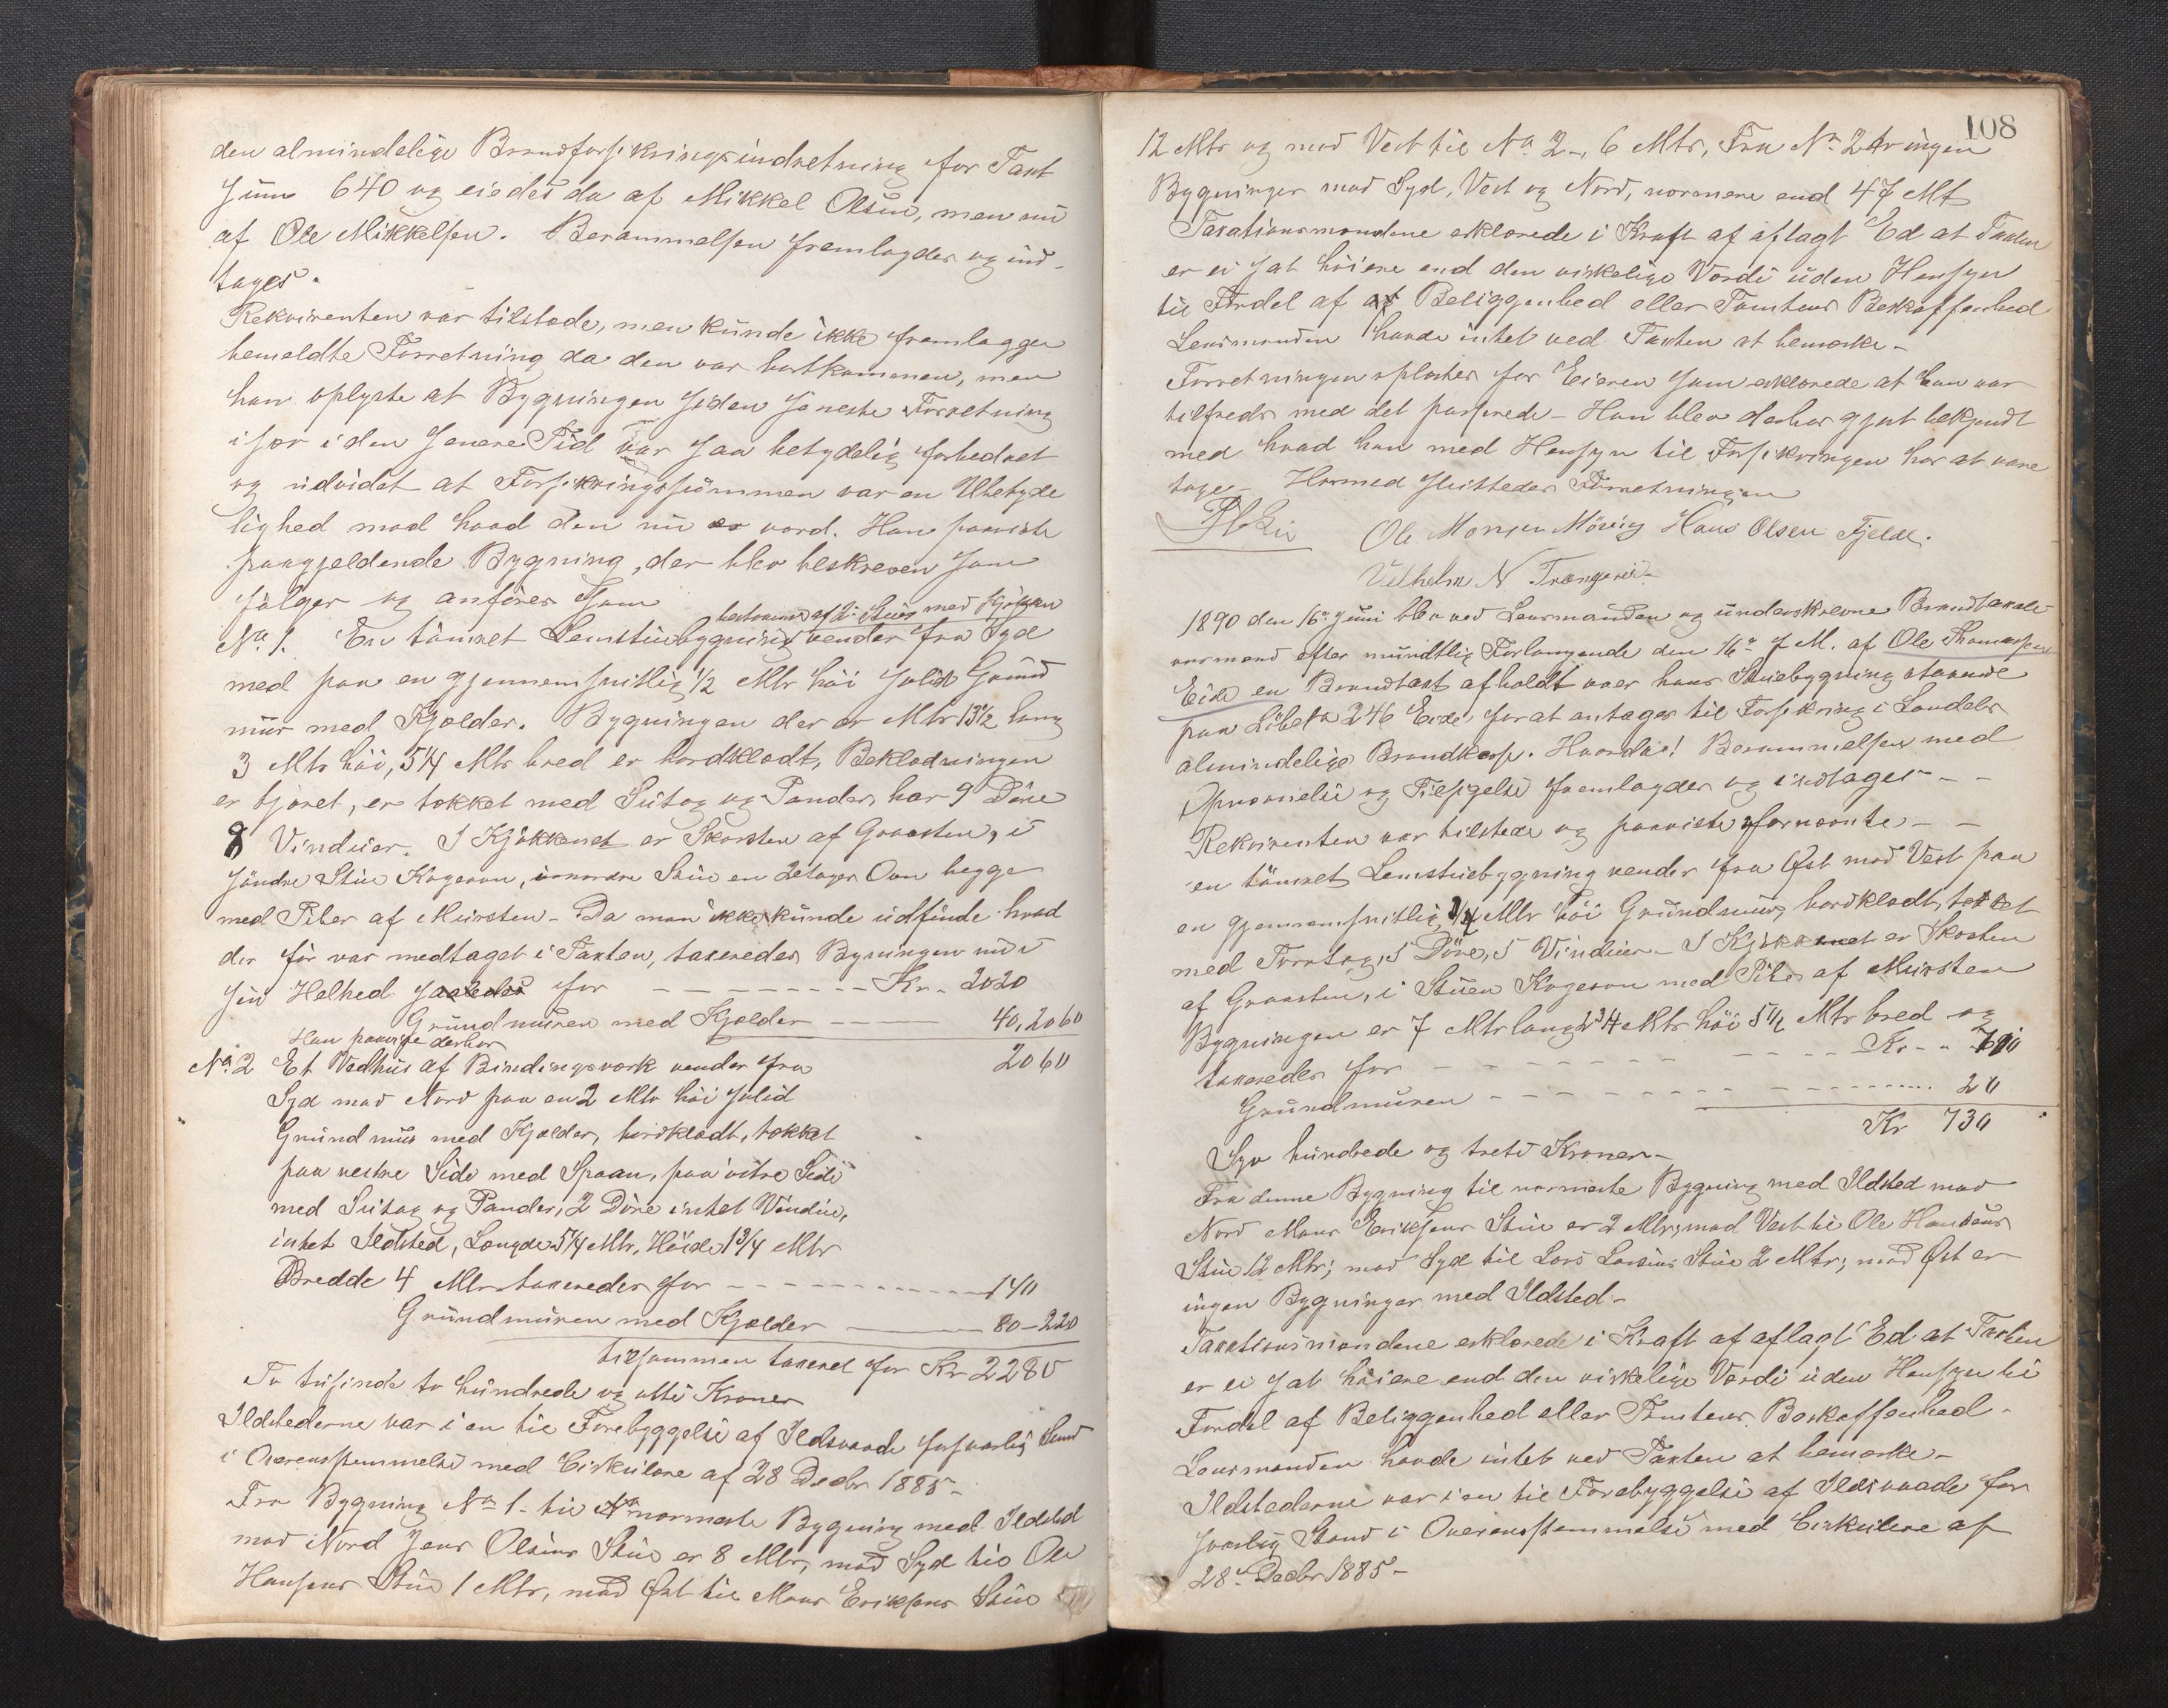 den almindelige Brandforsikringsindretning for Taxt
Sum 640 og eiedes da af Mikkel Olsen, men nu
af Ole Mikkelsen. Berammelsen fremlagdes og ind-
tages.
Rekvirenten var tilstede, men kunde ikke fremlægge
bemeldte Forretning da den var bortkommen, men
han oplyste at Bygningen siden seneste Forretning
især i den senere Tid var saa betydelig forbedret
og udvidet at Forsikringssummen var en Ubetyde
lighed mod hvad den nu er værd. Han paaviste
paagjeldende Bygning, der blev beskreven som
følger og anføres som
bestaaende af 2 Stuer med Kjøkken
No 1. En tømret Lemstuebygning vender fra Syd
med paa en gjennemsnitlig 1/2 Mtr høi solid Grund
mur med Kjelder. Bygningen der er Mtr 13 1/2 lang
3 Mtr høi, 5 1/4 Mtr bred er bordklædt, Beklædningen
er tjæret, er tækket med Sutag og Pander, har 9 Døre
8 Vinduer. I Kjøkkenet er Skorsten af Graasten, i
søndre Stue Kogeovn, i nordre Stue en 2etages Ovn begge
med Piber af Mursten - Da man ikke kunde udfinde hvad
der før var medtaget i Taxten, taxeredes Bygningen nu i
sin Helhed saaledes for - - - - - - Kr. 2020
Grundmuren med Kjelder - - - 40, 2060
Han paaviste derhos
No 2 Et Vedhus af Bindingsverk vender fra 2060
Syd mod Nord paa en 2 Mtr høi solid
Grundmur med Kjelder, bordklædt, tækket
paa vestre Side med Spaan, paa østre Side
med Sutag og Pander, 2 Døre intet Vindue,
intet Ildsted, Længde 5 1/4 Mtr, Høide 1 3/4 Mtr
Bredde 4 Mtr taxeredes for - - - - - - 140
Grundmuren med Kjelder - - - 80 - 220
tilsammen taxeret for Kr 2280
To tusinde to hundrede og otti Kroner
Ildstederne var i en til Forebyggelse af Ildsvaade forsvarlig Stand
i Overensstemmelse med Cirkulære af 28 Decbr 1885 -
Fra Bygning No 1 - til nærmeste Bygning med Ildsted
mod Nord Jens Olsens Stue er 8 Mtr, mod Syd til Ole
Hansens Stue 1 Mtr, mod Øst til Mons Eriksens Stue
108
12 Mtr og mod Vest til No 2 -, 6 Mtr, Fra No 2 er ingen
Bygninger mod Syd, Vest og Nord, nærmere end 47 Mt
Taxationsmændene erklærede i Kraft af aflagt Ed at Taxten
er ei sat høiere end den virkelige Værdi uden Hensyn
til Fordel af af Beliggenhed eller Tomtens Beskaffenhed
Lensmanden havde intet ved Taxten at bemærke -
Forretningen oplæstes for Eieren som erklærede at han var
tilfreds med det passerede - Han blev derhos gjort bekjendt
med hvad han med Hensyn til Forsikringen har at vare
tage - Hermed sluttedes Forretningen
Ole Monsen Møvig Hans Olsen Fjelde.
Vilhelm N Trængerei -
1890 den 16de Juni blev ved Lensmanden og underskrevne Brandtaxa
onsmænd efter mundtlig Forlangende den 16de d M. af Ole Thomassen
Eide en Brandtaxt afholdt over hans Stuebygning staaende
paa Løbe No 246 Eide, for at antages til Forsikring i Landets
almindelige Brandkasse. Hvorda! Berammelsen med
Opnævnelse og Tilsigelse fremlagdes og indtages - -
Rekvirenten var tilstede og paaviste fornævnte - -
en tømret Lemstuebygning vender fra Øst mod Vest paa
en gjennemsnitlig 3/4 Mtr høi Grundmur, bordklædt, tækket
med Torvtag, 5 Døre, 5 Vinduer - I Kjøkkenet er Skorsten
af Graasten, i Stuen Kogeovn med Pibe af Mursten
Bygningen er 7 Mtr lang 2 3/4 Mtr høi 5 1/2 Mtr bred og
taxeredes for - - - - - - Kr - - 710
Grundmuren - - - - - - 20
Kr 730
Syv hundrede og treti Kroner -
Fra denne Bygning til nærmeste Bygning med Ildsted mod
Nord Mons Eriksens Stue er 2 Mtr; mod Vest til Ole Hansens
Stue 12 Mtr; mod Syd til Lars Larsens Stue 2 Mtr; mod Øst er
ingen Bygninger med Ildsted -
Taxationsmændene erklærede i Kraft af aflagt Ed at Taxten
er ei sat høiere end den virkelige Værdi uden Hensyn til
Fordel af Beliggenhed eller Tomtens Beskaffenhed -
Lensmanden havde intet ved Taxten at bemærke -
Ildstederne var i en til Forebyggelse af Ildsvaade for
svarlig Stand i Overensstemmelse med Cirkulære af
28de Decbr 1885 -